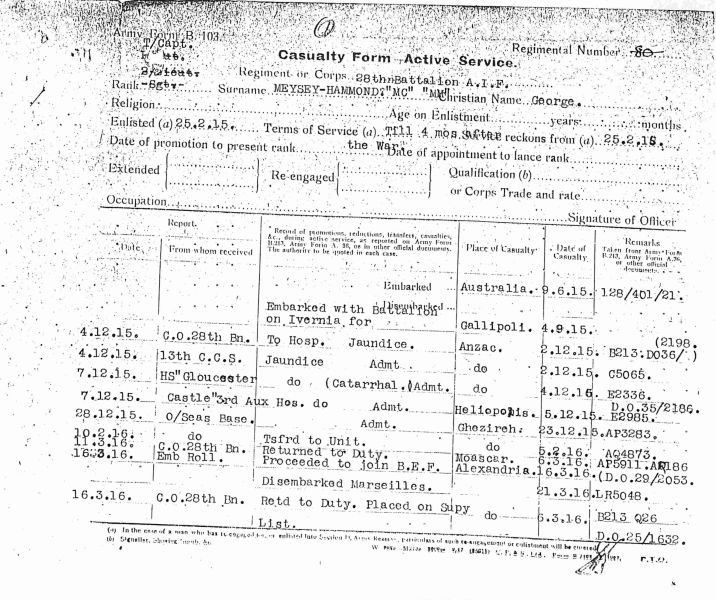 Army Form B. 103.
T/Capt.
Lt.
2/Lieut.
Casualty Form—Active Service.
Regimental Number 80
Regiment or Corps 28th Battalion A.I.F.
Rank Sgt. Surname MEYSEY-HAMMOND, "MC" "MM" Christian Name George.
Religion Age on Enlistment years months
Enlisted (a) 25.2.15. Terms of Service (a) Till 4 mos after reckons from (a) 25.2.15.
the War.
Date of promotion to present rank Date of appointment to lance rank
Extended Re-engaged Qualification (b)
or Corps Trade and rate
Occupation Signature of Officer
Report. Record of promotions, reductions, transfers, casualties, &c., during active service, as reported on Army Form B.213, Army Form A. 36, or in other official documents. The authority to be quoted in each case. Place of Casualty Date of Casualty. Remarks Taken from Army Form B.213, Army Form A.36, or other official documents.
Date From whom received
Embarked Australia. 9.6.15. 128/401/21.
Disembarked
Embarked with Battalion
on Ivernia for Gallipoli. 4.9.15.
4.12.15. C.O.28th Bn. To Hosp. Jaundice. Anzac. 2.12.15. B213.DO36/ (2198.)
4.12.15. 13th C.C.S. Jaundice Admt do 2.12.15. C5065.
7.12.15. HS"Gloucester Castle" do (Catarrhal.) Admt. do 4.12.15. E2336.
D.O.35/2186.
7.12.15. 3rd Aux Hos. do Admt. Heliopolis. 5.12.15. E2985.
28.12.15. O/Seas Base. Admt. Ghezireh. 23.12.15. AP3283.
10.2.16. do Tsfrd to Unit. do 5.2.16. AQ4873.
11.3.16. C.O.28th Bn. Returned to Duty. Moascar. 6.3.16. AP5911.
16.3.16. Emb Roll. Proceeded to join B.E.F. Alexandria. 16.3.16. (D.O.29/2053.
Disembarked Marseilles. 21.3.16. LR5048.
16.3.16. C.O.28th Bn. Retd to Duty. Placed on Supy do 6.3.16. B213 Q26
List. D.O.25/1632.
(b) Signaller, Shoeing Smith, &c.
P.T.O.